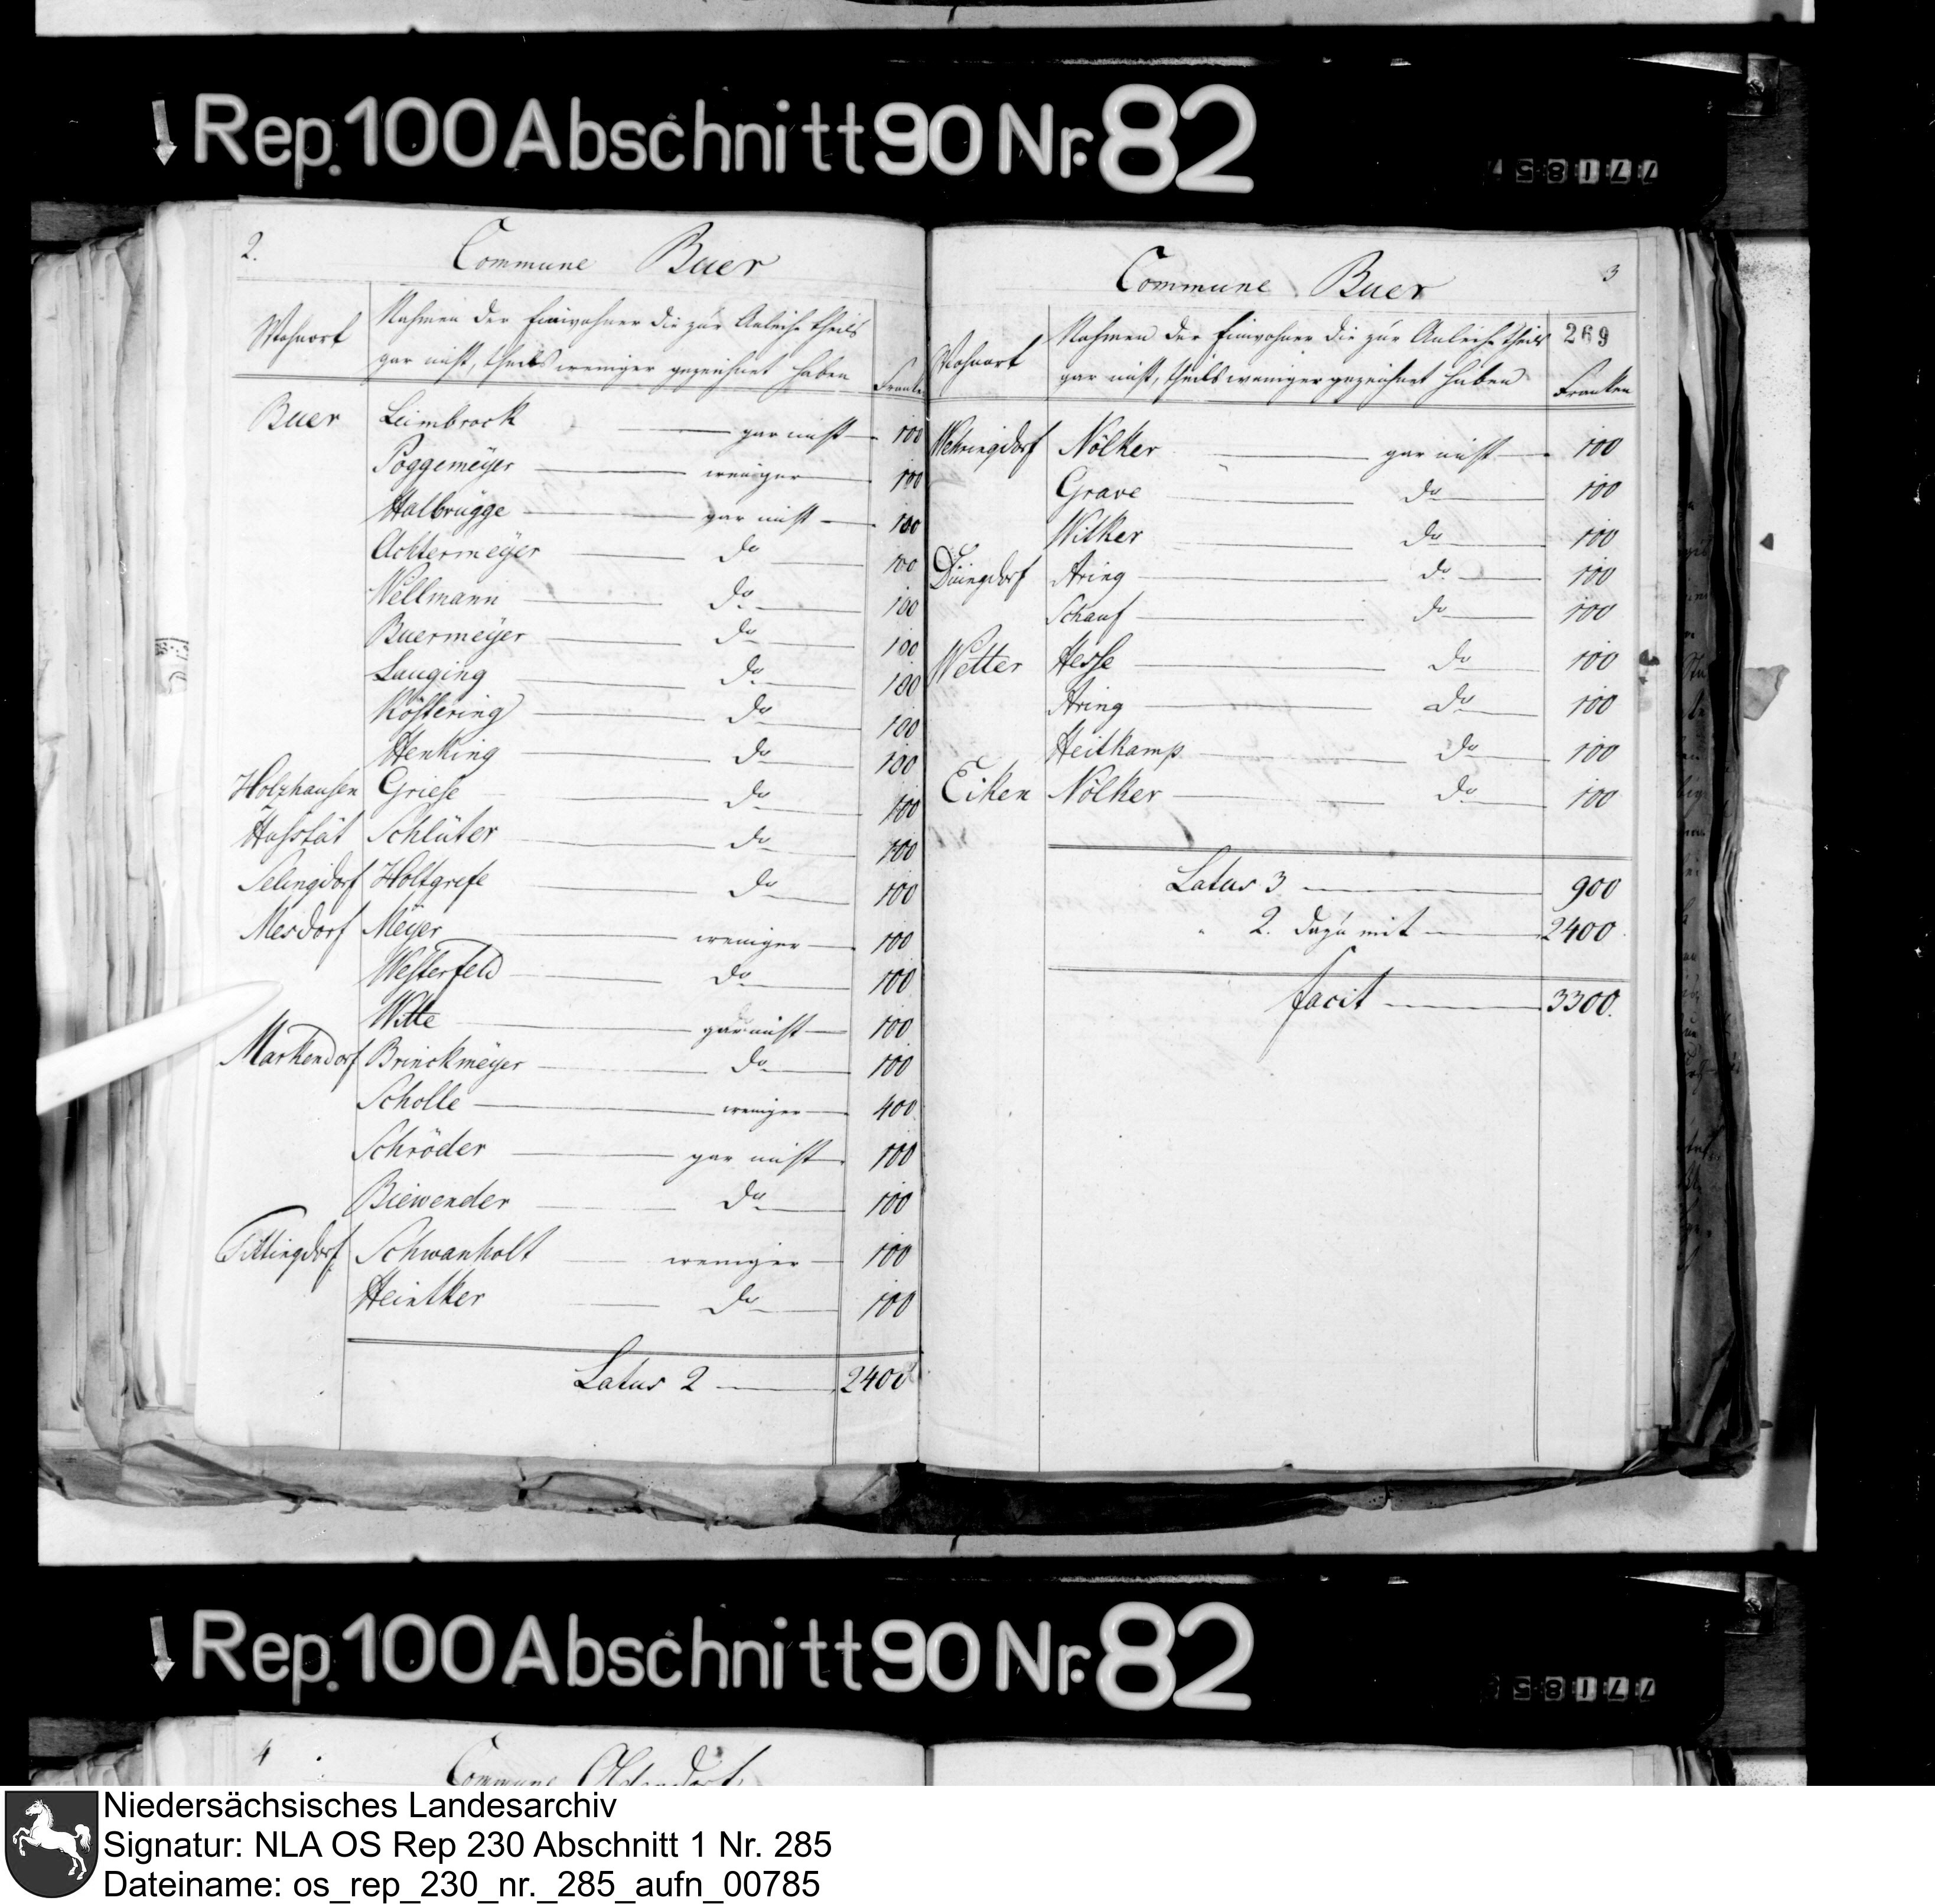 Rep. 100 Abschnitt 90 Nr. 82
77185
2.
Commune Buer
Wohnort
Nahmen der Einwohner die zur Anleihe theils
gar nicht, theils weniger gezeichnet haben
Franken
Buer Leimbrock gar nicht 100
Poggemeÿer weniger 100
Halbrügge gar nicht 100
Achtermeÿer do 100
Wellmann do 100
Buermeÿer do 100
Lauging do 100
Köstering do 100
Henking do 100
Holzhausen Griese do 100
Hustät Schlüter do 100
Selingdorf Holtgrefe do 100
Mesdorf Meÿer weniger 100
Westerfeld do 100
Witte gar nicht 100
Markendorf Brinckmeÿer do 100
Scholle weniger 400
Schröder gar nicht 100
Biewender do 100
Tittingdorf Schwanholt weniger 100
Heintker do 100
Latus 2 2400
3
Commune Buer
269
Wohnort
Nahmen der Einwohner die zur Anleihe theils
gar nicht, theils weniger gezeichnet haben
Franken
Wehringdorf Nölker gar nicht 100
Grave do 100
Witker do 100
Düingdorf Aring do 100
Schauf do 100
Wetter Hesse do 100
Aring do 100
Heitkamp do 100
Eiken Nölker do 100
Latus 3 900
" 2. dazu mit 2400
facit 3300.
Rep. 100 Abschnitt 90 Nr. 82
77185
4
Commune Oldendorf
Niedersächsisches Landesarchiv
Signatur: NLA OS Rep 230 Abschnitt 1 Nr. 285
Dateiname: os_rep_230_nr._285_aufn_00785